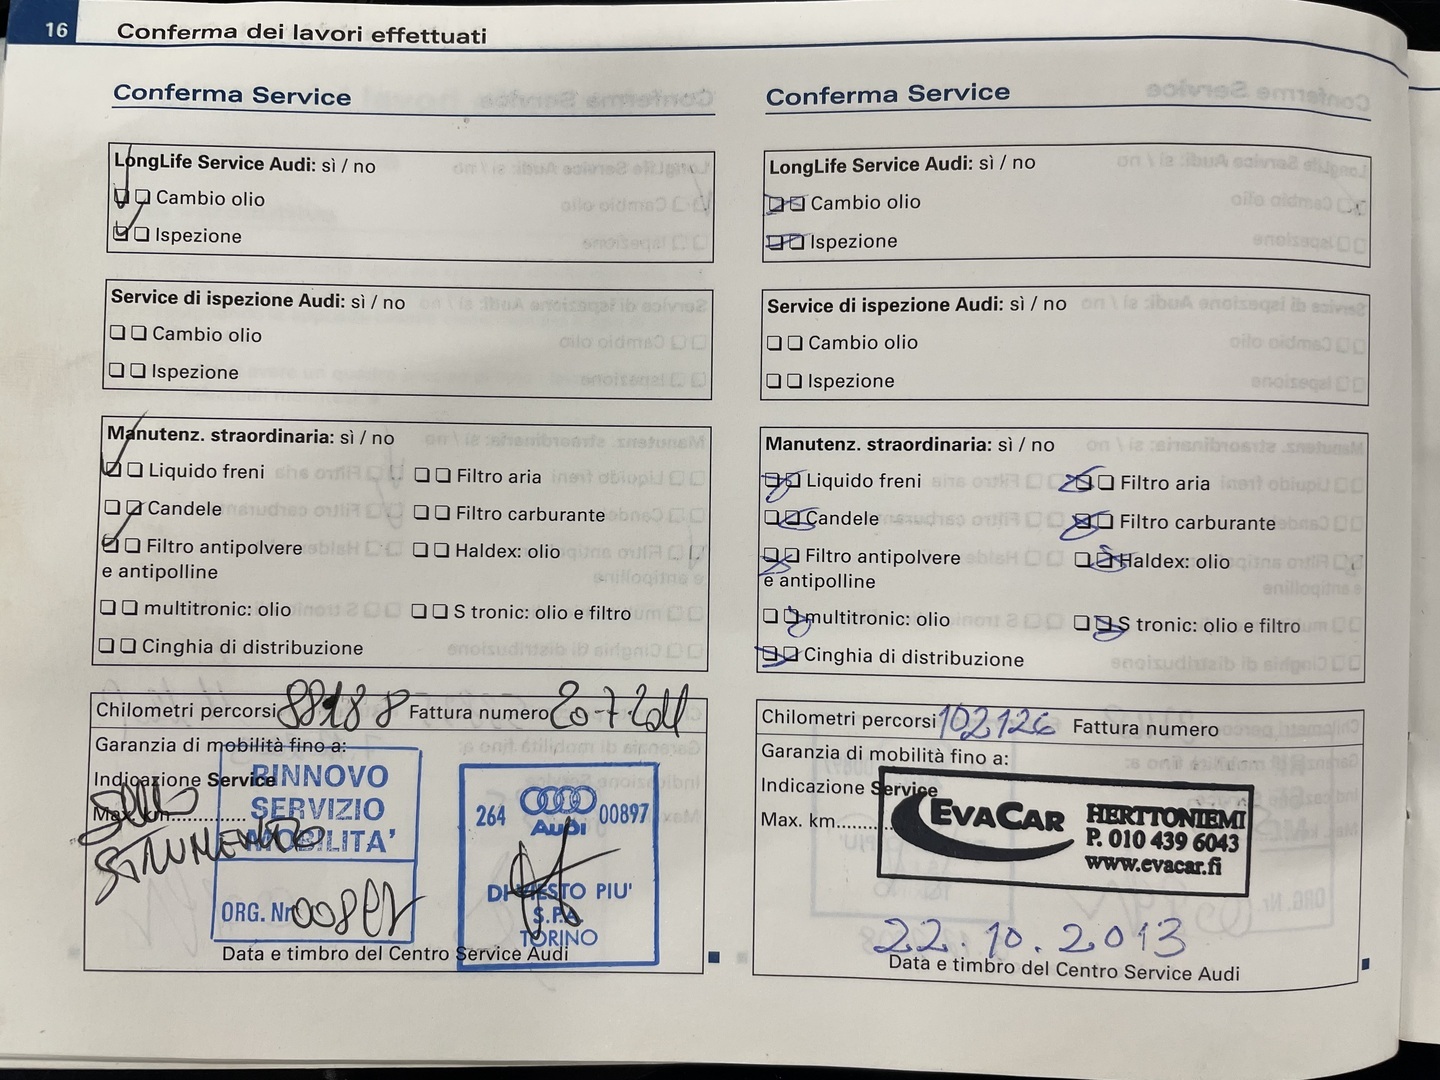 16 Conferma dei lavori effettuati
Conferma Service
LongLife Service Audi: sì / no
Cambio olio
Ispezione
Service di ispezione Audi: sì / no
Cambio olio
Ispezione
Manutenz. straordinaria: sì / no
Liquido freni Filtro aria
Candele Filtro carburante
Filtro antipolvere Haldex: olio
e antipolline
multitronic: olio S tronic: olio e filtro
Cinghia di distribuzione
Chilometri percorsi 88188 Fattura numero 20-7-2011
Garanzia di mobilità fino a:
Indicazione Service
Max. km
STRUMENTO
RINNOVO
SERVIZIO
MOBILITA'
ORG. Nr 00897
264 Audi 00897
DI VIESTO PIU'
S.P.A.
TORINO
Data e timbro del Centro Service Audi
Conferma Service
LongLife Service Audi: sì / no
Cambio olio
Ispezione
Service di ispezione Audi: sì / no
Cambio olio
Ispezione
Manutenz. straordinaria: sì / no
Liquido freni Filtro aria
Candele Filtro carburante
Filtro antipolvere Haldex: olio
e antipolline
multitronic: olio S tronic: olio e filtro
Cinghia di distribuzione
Chilometri percorsi 102126 Fattura numero
Garanzia di mobilità fino a:
Indicazione Service
Max. km..........
EVACAR HERTTONIEMI
P. 010 439 6043
www.evacar.fi
22.10.2013
Data e timbro del Centro Service Audi